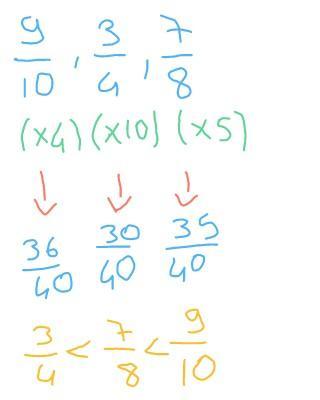 9/10, 3/4, 7/8
(x4) (x10) (x5)
36/40 30/40 35/40
3/4 < 7/8 < 9/10